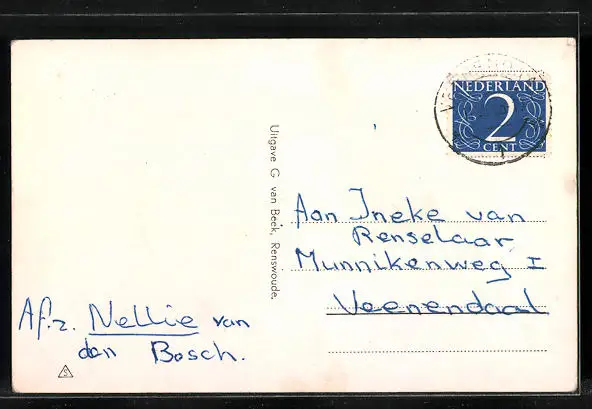 NEDERLAND
2
CENT
Uitgave G. van Beek, Renswoude.
Aan Ineke van
Renselaar
Munnikenweg I
Veenendaal
Afz. Nellie van
den Bosch.
S